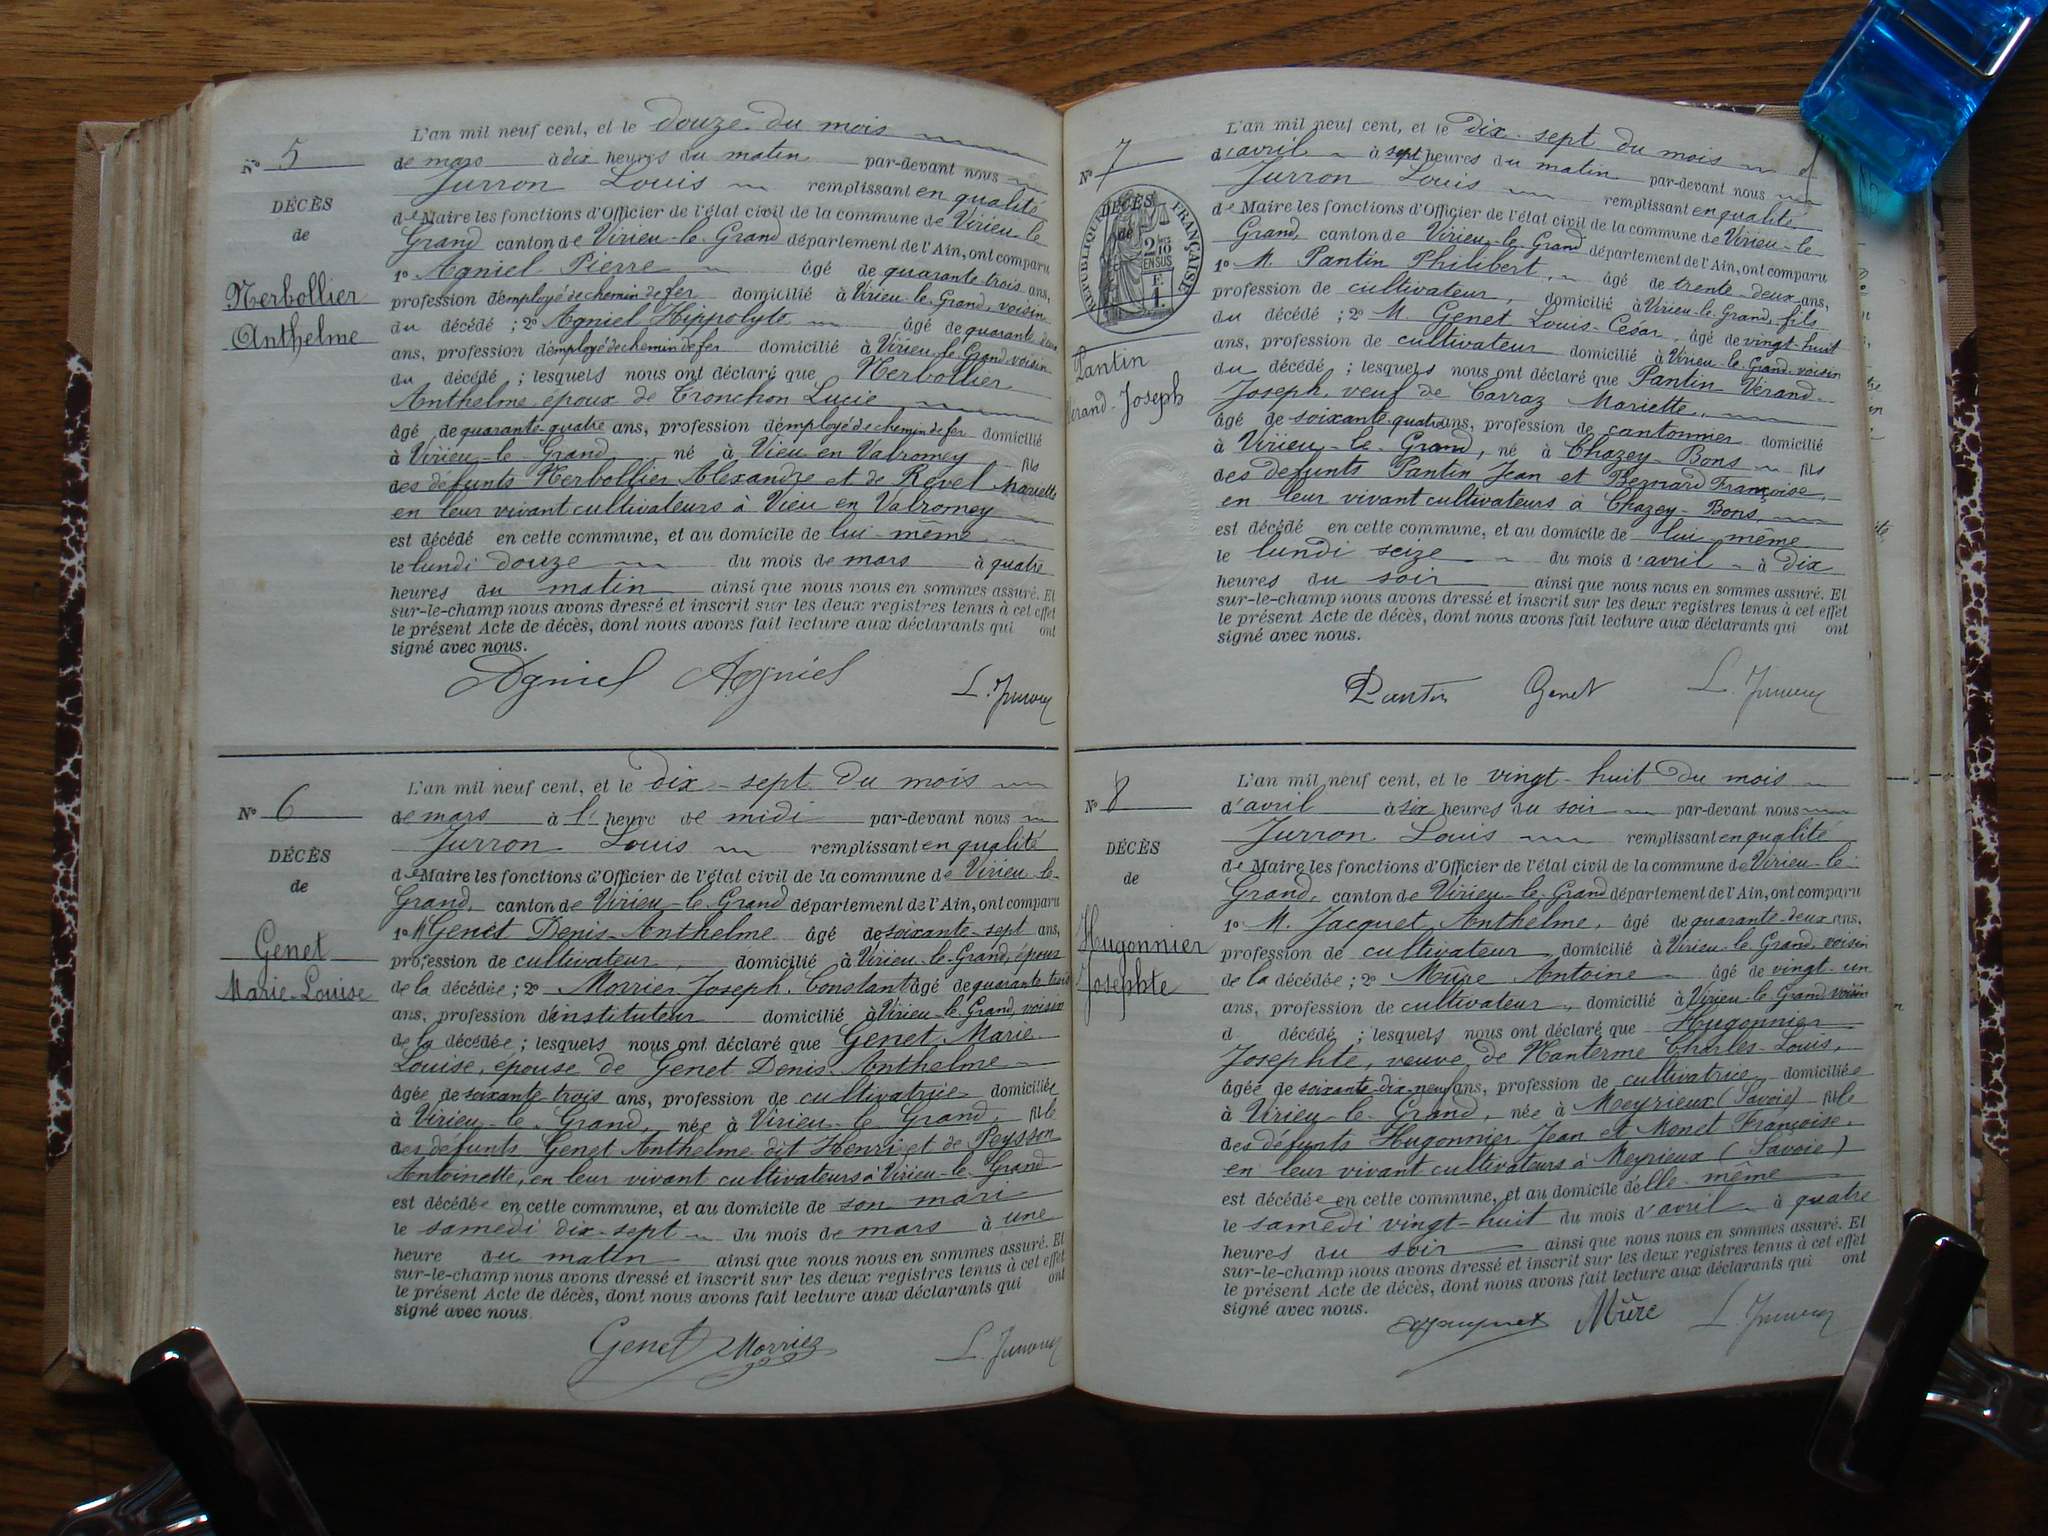 L'an mil neuf cent, et le douze du mois
N° 5
de mars à dix heures du matin par-devant nous
Jurron Louis remplissant en qualité
DÉCÈS
de Maire les fonctions d'Officier de l'état civil de la commune de Virieu-le-
de
Grand canton de Virieu-le-Grand département de l'Ain, ont comparu
1° Agniel Pierre âgé de quarante trois ans,
Nerbollier
profession d'employé de chemin de fer domicilié à Virieu-le-Grand, voisin
Anthelme
du décédé ; 2° Agniel Hippolyte âgé de quarante deux
ans, profession d'employé de chemin de fer domicilié à Virieu-le-Grand voisin
du décédé ; lesquels nous ont déclaré que Nerbollier
Anthelme époux de Tronchon Lucie
âgé de quarante-quatre ans, profession d'employé de chemin de fer domicilié
à Virieu-le-Grand né à Vieu en Valromey fils
des défunts Nerbollier Alexandre et de Revel Mariette
en leur vivant cultivateurs à Vieu en Valromey
est décédé en cette commune, et au domicile de lui-même
le lundi douze du mois de mars à quatre
heures du matin ainsi que nous nous en sommes assuré. Et
sur-le-champ nous avons dressé et inscrit sur les deux registres tenus à cet effet
le présent Acte de décès, dont nous avons fait lecture aux déclarants qui ont
signé avec nous.
Agniel Agniel L. Jurron
L'an mil neuf cent, et le dix-sept du mois
N° 6
de mars à 1 heure de midi par-devant nous
Jurron Louis remplissant en qualité
DÉCÈS
de Maire les fonctions d'Officier de l'état civil de la commune de Virieu-le-
de
Grand, canton de Virieu-le-Grand département de l'Ain, ont comparu
1° M Genet Denis-Anthelme âgé de soixante-sept ans,
Genet
profession de cultivateur, domicilié à Virieu-le-Grand, époux
Marie-Louise
de la décédée ; 2° Morrier Joseph Constant âgé de quarante trois
ans, profession d'instituteur domicilié à Virieu-le-Grand, voisin
de la décédée ; lesquels nous ont déclaré que Genet Marie
Louise, épouse de Genet Denis-Anthelme
âgée de soixante trois ans, profession de cultivatrice domiciliée
à Virieu-le-Grand, née à Virieu-le-Grand, fille
des défunts Genet Anthelme dit Henri et de Peysson
Antoinette, en leur vivant cultivateurs à Virieu-le-Grand
est décédée en cette commune, et au domicile de son mari
le samedi dix-sept du mois de mars à une
heure du matin ainsi que nous nous en sommes assuré. Et
sur-le-champ nous avons dressé et inscrit sur les deux registres tenus à cet effet
le présent Acte de décès, dont nous avons fait lecture aux déclarants qui ont
signé avec nous.
Genet Morrier L. Jurron
L'an mil neuf cent, et le dix-sept du mois
N° 7
d'avril à sept heures du matin par-devant nous
Jurron Louis remplissant en qualité
DÉCÈS
RÉPUBLIQUE FRANÇAISE
de
2/10 EN SUS
de Maire les fonctions d'Officier de l'état civil de la commune de Virieu-le-
Grand, canton de Virieu-le-Grand département de l'Ain, ont comparu
1° M. Pantin Philibert, âgé de trente-deux ans,
profession de cultivateur, domicilié à Virieu-le-Grand, fils
du décédé ; 2° M. Genet Louis-César, âgé de vingt-huit
Pantin
ans, profession de cultivateur domicilié à Virieu-le-Grand, voisin
Vérand-Joseph
du décédé ; lesquels nous ont déclaré que Pantin Vérand-
Joseph, veuf de Carraz Mariette,
âgé de soixante-quatre ans, profession de cantonnier domicilié
à Virieu-le-Grand, né à Chazey-Bons fils
des défunts Pantin Jean et Bernard Françoise,
en leur vivant cultivateurs à Chazey-Bons,
est décédé en cette commune, et au domicile de lui-même
le lundi seize du mois d'avril à dix
heures du soir ainsi que nous nous en sommes assuré. Et
sur-le-champ nous avons dressé et inscrit sur les deux registres tenus à cet effet
le présent Acte de décès, dont nous avons fait lecture aux déclarants qui ont
signé avec nous.
Pantin Genet L. Jurron
L'an mil neuf cent, et le vingt-huit du mois
N° 8
d'avril à six heures du soir par-devant nous
Jurron Louis remplissant en qualité
DÉCÈS
de Maire les fonctions d'Officier de l'état civil de la commune de Virieu-le-
de
Grand, canton de Virieu-le-Grand département de l'Ain, ont comparu
1° M. Jacquet Anthelme, âgé de quarante-deux ans,
Hugonnier
profession de cultivateur, domicilié à Virieu-le-Grand, voisin
Josephte
de la décédée ; 2° Mûre Antoine âgé de vingt-un
ans, profession de cultivateur, domicilié à Virieu-le-Grand voisin
d décédé ; lesquels nous ont déclaré que Hugonnier
Josephte, veuve de Nanterme Charles-Louis,
âgée de soixante-dix-neuf ans, profession de cultivatrice domiciliée
à Virieu-le-Grand, née à Meyrieux (Savoie) fille
des défunts Hugonnier Jean et Monet Françoise,
en leur vivant cultivateurs à Meyrieux (Savoie)
est décédée en cette commune, et au domicile d'elle-même
le samedi vingt-huit du mois d'avril à quatre
heures du soir ainsi que nous nous en sommes assuré. Et
sur-le-champ nous avons dressé et inscrit sur les deux registres tenus à cet effet
le présent Acte de décès, dont nous avons fait lecture aux déclarants qui ont
signé avec nous.
Jacquet Mûre L. Jurron